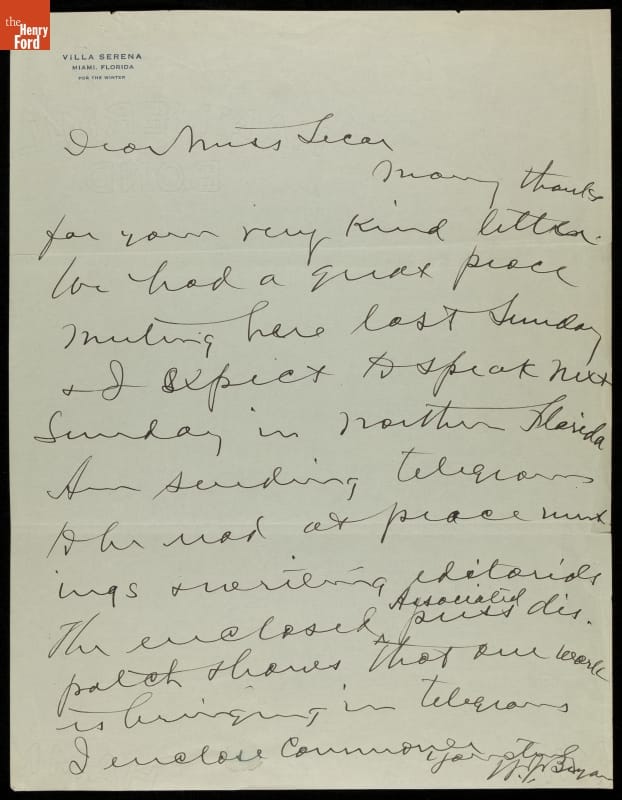 the
Henry
Ford
VILLA SERENA
MIAMI, FLORIDA
FOR THE WINTER
Dear Miss Lecar
Many thanks
for your very kind letter.
We had a great peace
meeting here last Sunday
& I expect to speak next
Sunday in northern Florida
Am sending telegrams
to be read at peace meet
ings & writing editorials
The enclosed Associated press dis.
patch shows that our work
is bringing in telegrams
I enclose Commoner
Yours truly
W. J. Bryan